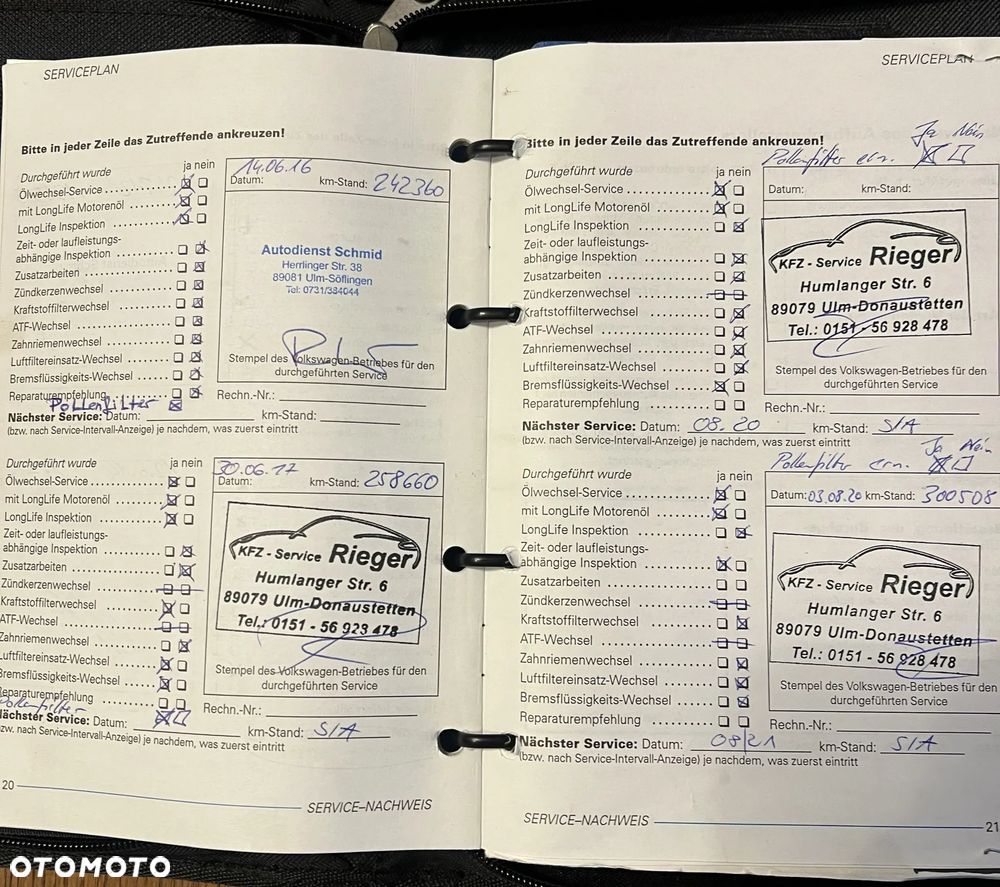 SERVICEPLAN
Bitte in jeder Zeile das Zutreffende ankreuzen!
Durchgeführt wurde ja nein
Ölwechsel-Service
mit LongLife Motorenöl
LongLife Inspektion
Zeit- oder laufleistungs-
abhängige Inspektion
Zusatzarbeiten
Zündkerzenwechsel
Kraftstoffilterwechsel
ATF-Wechsel
Zahnriemenwechsel
Luftfiltereinsatz-Wechsel
Bremsflüssigkeits-Wechsel
Reparaturempfehlung
Pollenfilter
Nächster Service: Datum: km-Stand:
(bzw. nach Service-Intervall-Anzeige) je nachdem, was zuerst eintritt
14.06.16
Datum: km-Stand: 242360
Autodienst Schmid
Herrlinger Str. 38
89081 Ulm-Söflingen
Tel: 0731/384044
Stempel des Volkswagen-Betriebes für den
durchgeführten Service
Rechn.-Nr.:
Durchgeführt wurde ja nein
Ölwechsel-Service
mit LongLife Motorenöl
LongLife Inspektion
Zeit- oder laufleistungs-
abhängige Inspektion
Zusatzarbeiten
Zündkerzenwechsel
Kraftstoffilterwechsel
ATF-Wechsel
Zahnriemenwechsel
Luftfiltereinsatz-Wechsel
Bremsflüssigkeits-Wechsel
Reparaturempfehlung
Pollenfilter
Nächster Service: Datum: km-Stand: S/A
(bzw. nach Service-Intervall-Anzeige) je nachdem, was zuerst eintritt
30.06.17
Datum: km-Stand: 258660
KFZ - Service Rieger
Humlanger Str. 6
89079 Ulm-Donaustetten
Tel.: 0151 - 56 928 478
Stempel des Volkswagen-Betriebes für den
durchgeführten Service
Rechn.-Nr.:
20
SERVICE–NACHWEIS
SERVICEPLAN
Bitte in jeder Zeile das Zutreffende ankreuzen!
Ja Nein
Pollenfilter ern.
Durchgeführt wurde ja nein
Ölwechsel-Service
mit LongLife Motorenöl
LongLife Inspektion
Zeit- oder laufleistungs-
abhängige Inspektion
Zusatzarbeiten
Zündkerzenwechsel
Kraftstoffilterwechsel
ATF-Wechsel
Zahnriemenwechsel
Luftfiltereinsatz-Wechsel
Bremsflüssigkeits-Wechsel
Reparaturempfehlung
Nächster Service: Datum: 08.20 km-Stand: S/A
(bzw. nach Service-Intervall-Anzeige) je nachdem, was zuerst eintritt
Datum: km-Stand:
KFZ - Service Rieger
Humlanger Str. 6
89079 Ulm-Donaustetten
Tel.: 0151 - 56 928 478
Stempel des Volkswagen-Betriebes für den
durchgeführten Service
Rechn.-Nr.:
Ja Nein
Pollenfilter ern.
Durchgeführt wurde ja nein
Ölwechsel-Service
mit LongLife Motorenöl
LongLife Inspektion
Zeit- oder laufleistungs-
abhängige Inspektion
Zusatzarbeiten
Zündkerzenwechsel
Kraftstoffilterwechsel
ATF-Wechsel
Zahnriemenwechsel
Luftfiltereinsatz-Wechsel
Bremsflüssigkeits-Wechsel
Reparaturempfehlung
Nächster Service: Datum: 08/21 km-Stand: S/A
(bzw. nach Service-Intervall-Anzeige) je nachdem, was zuerst eintritt
Datum: 03.08.20 km-Stand: 300508
KFZ - Service Rieger
Humlanger Str. 6
89079 Ulm-Donaustetten
Tel.: 0151 - 56 928 478
Stempel des Volkswagen-Betriebes für den
durchgeführten Service
Rechn.-Nr.:
SERVICE–NACHWEIS
21
OTOMOTO